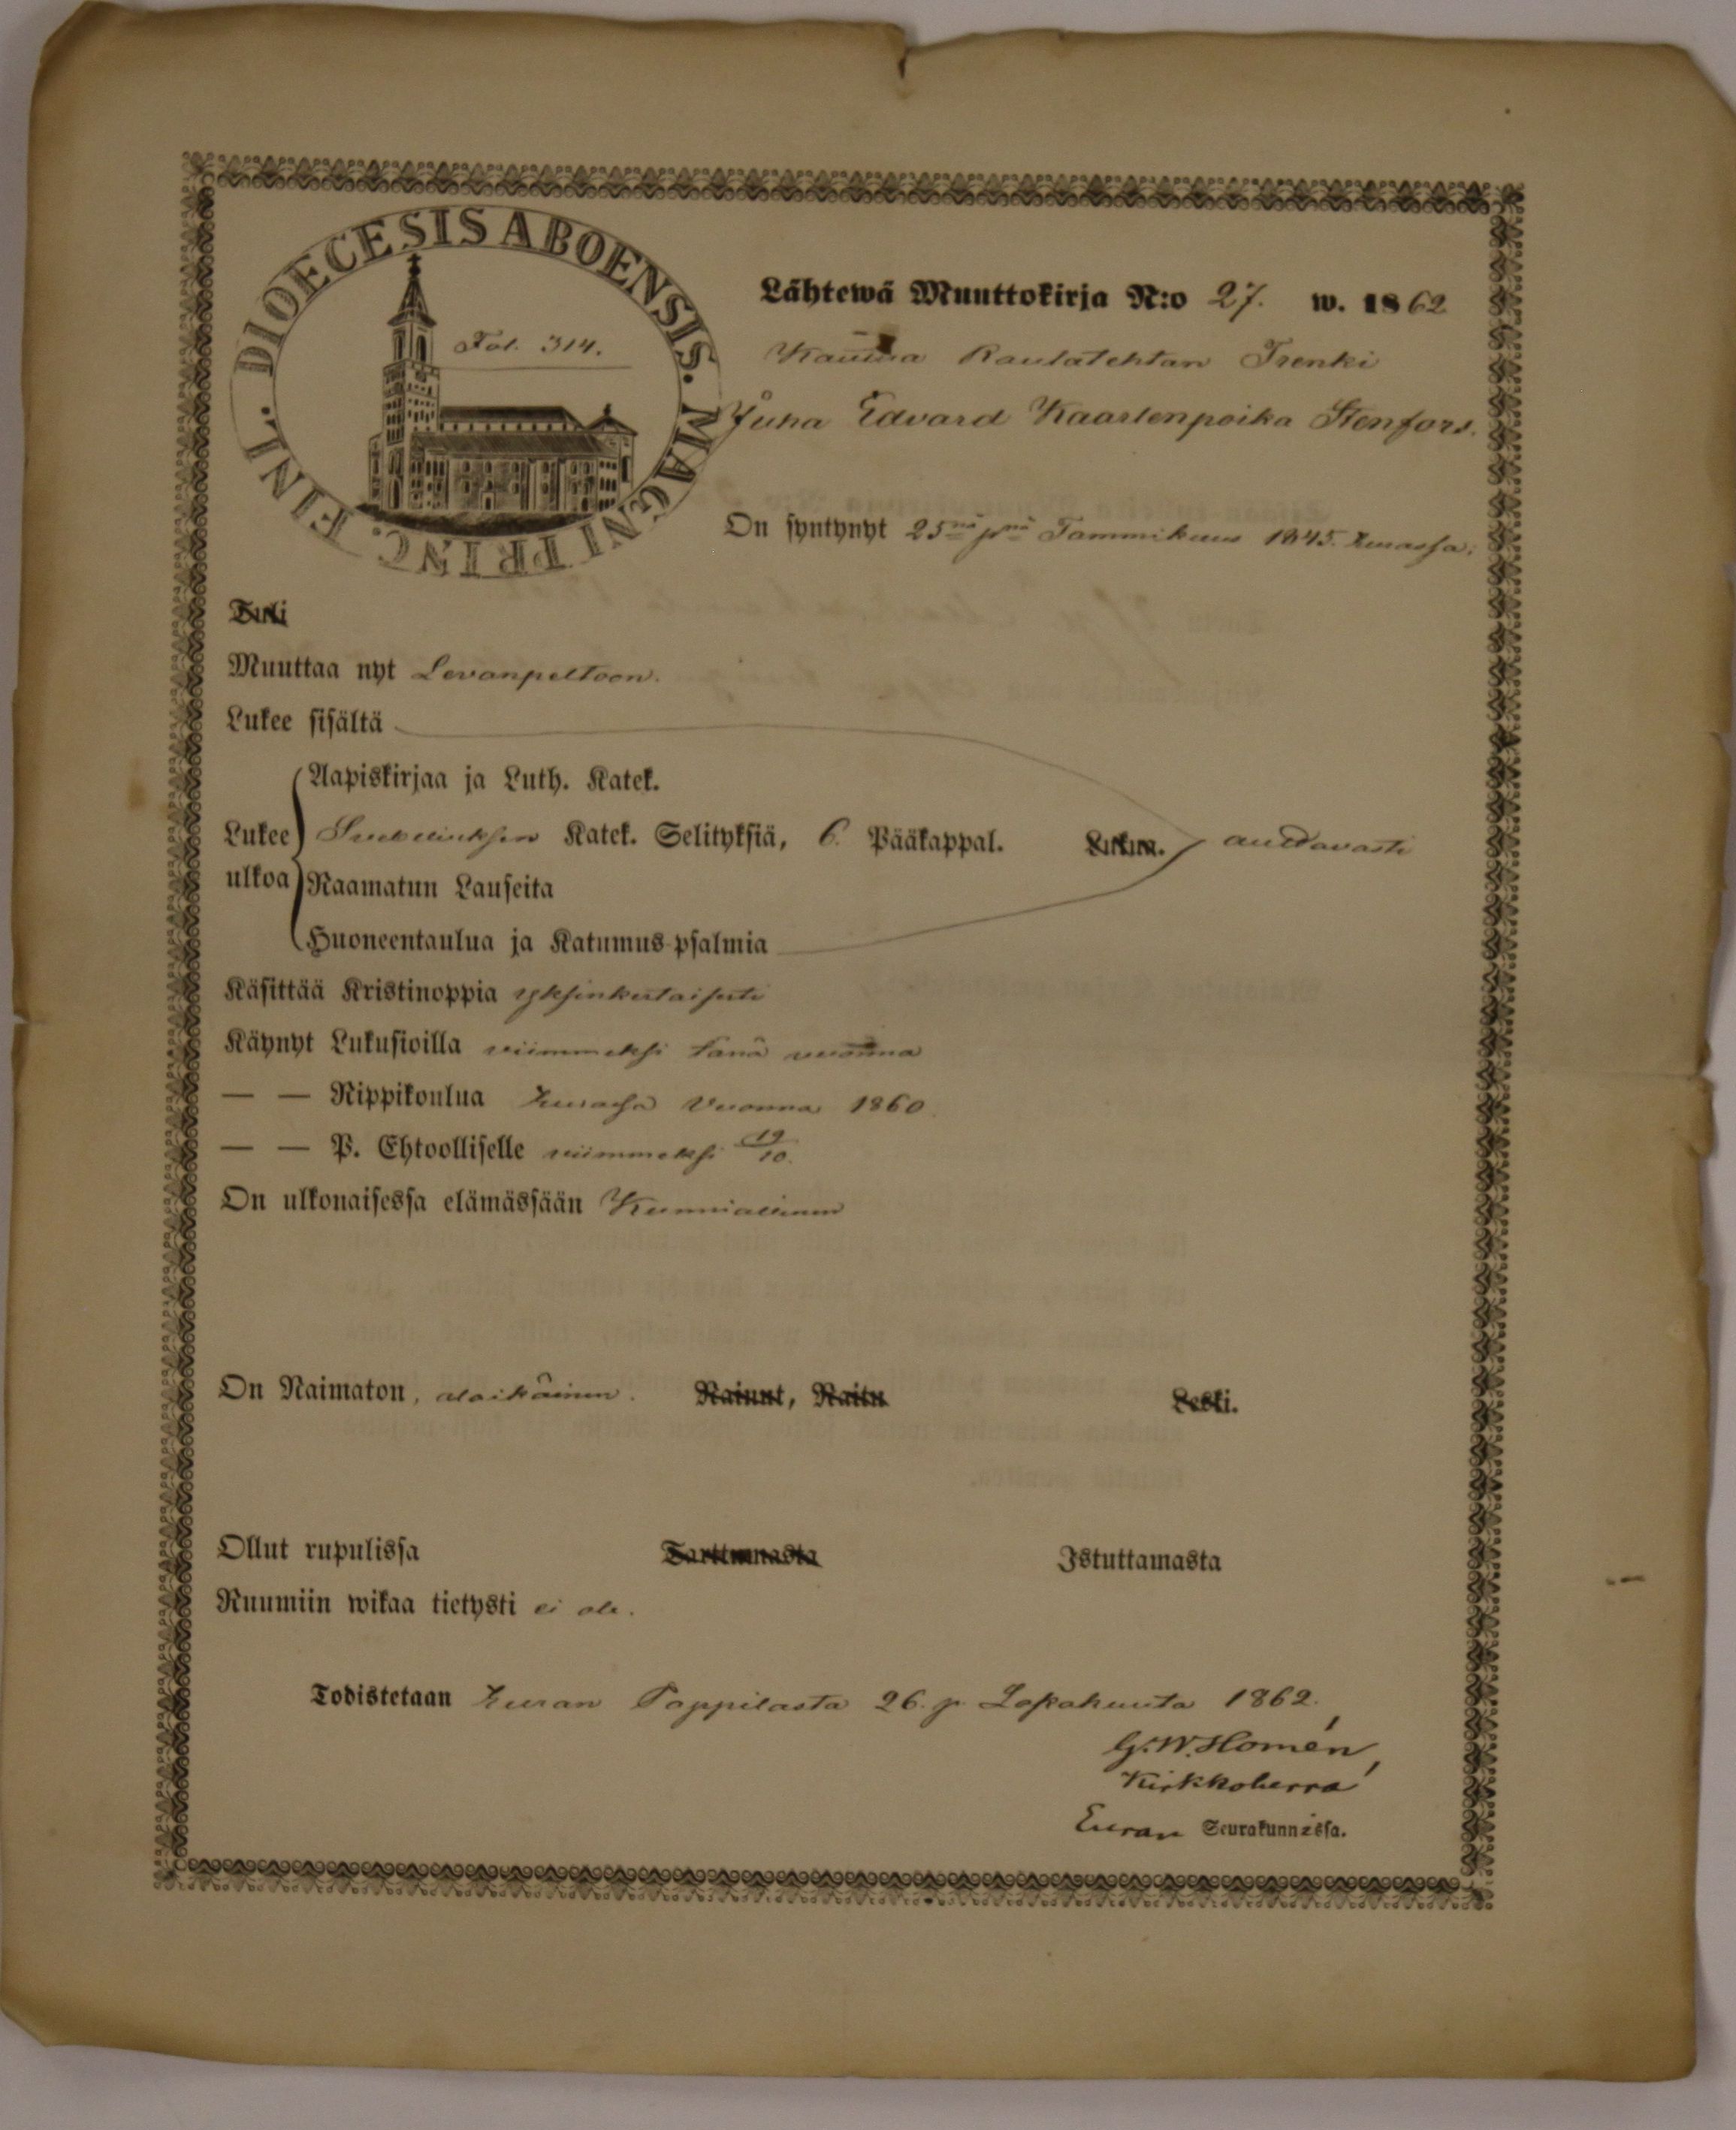 DIOECESIS ABOENSIS. MAGNI PRINC. FINL.
Fol. 314.
Lähtewä Muuttokirja N:o 27. w. 1862
Kauttua Rautatehtan Trenki
Juha Edvard Kaarlenpoika Stenfors.
On syntynyt 25nä pnä Tammikuus 1845. Eurassa;
Tuli
Muuttaa nyt Levanpeltoon.
Lukee sisältä
Aapiskirjaa ja Luth. Katek.
Lukee Svebeliuksen Katek. Selityksiä, 6. Pääkappal. Lukun. auttavasti
ulkoa Raamatun Lauseita
Huoneentaulua ja Katumus-psalmia
Käsittää Kristinoppia yksinkertaisesti
Käynyt Lukusioilla viimmeksi tänä vuonna
— — Rippikoulua Eurassa Vuonna 1860.
— — P. Ehtoolliselle viimmeksi 19/10.
On ulkonaisessa elämässään Kunniallinen
On Naimaton, alaikäinen. Nainut, Naitu Leski.
Ollut rupulissa Tarttumasta Istuttamasta
Ruumiin wikaa tietysti ei ole.
Todistetaan Euran Pappilasta 26. p. Lokakuuta 1862.
G. W. Homén,
Kirkkoherra
Euran Seurakunnissa.